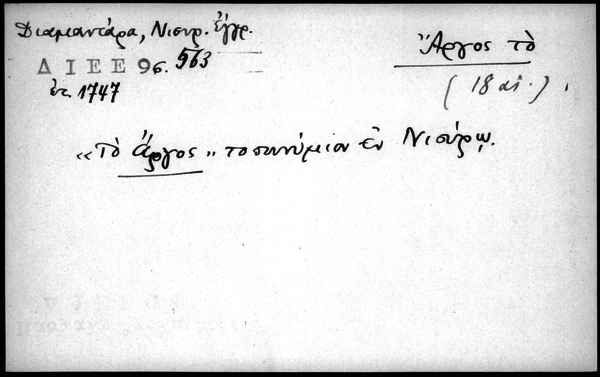 Διαμαντάρα, Νισυρ. ἔγγρ.
Ἄργος τὸ
Δ Ι Ε Ε 9σ. 563
ἔτ. 1747
(18 αἰ.).
«Τὸ Ἄργος» τοπωνύμιον ἐν Νισύρῳ.